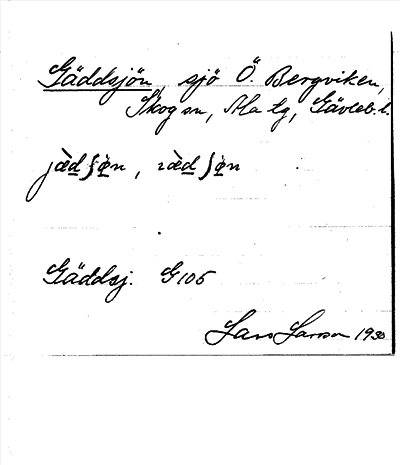 Gäddsjön, sjö Ö. Bergviken,
Skog sn, Ala tg, Gävleb. l.
jæ̀dʃø̣n, ıæ̀dʃø̣n
Gäddsj. G105
Lars Larsson 1930